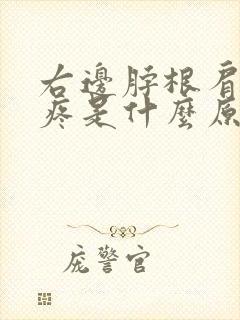 右邊脖根肩
疼是什麼原
庞警官